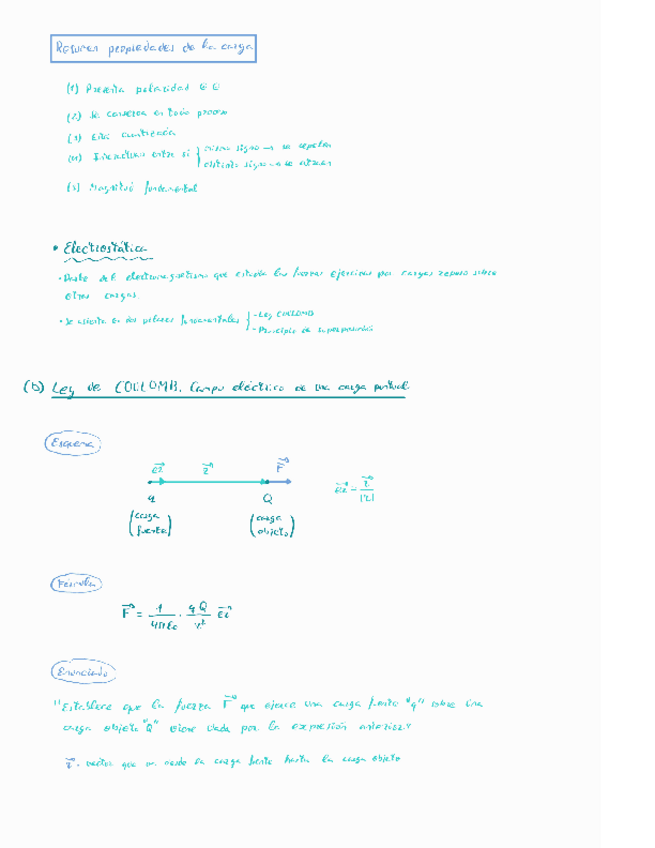 Resumen propiedades de la carga
(1) Presenta polaridad ⊕ ⊖
(2) Se conserva en todo proceso
(3) Está cuantizada
(4) Interactúan entre sí { mismo signo → se repelen
distinto signo → se atraen
(5) Magnitud fundamental
• Electrostática
· Parte del electromagnetismo que estudia las fuerzas ejercidas por cargas reposo sobre
otras cargas.
· Se asienta en dos pilares fundamentales { - Ley COULOMB
- Principio de superposición
(b) Ley de COULOMB. Campo eléctrico de una carga puntual
Esquema
q Q
(carga fuente) (carga objeto)
Fórmula
F = 1/4πε₀ · qQ/r²
Enunciado
"Establece que la fuerza F que ejerce una carga fuente "q" sobre una
carga objeto "Q" viene dada por la expresión anterior"
vector que va desde la carga fuente hasta la carga objeto